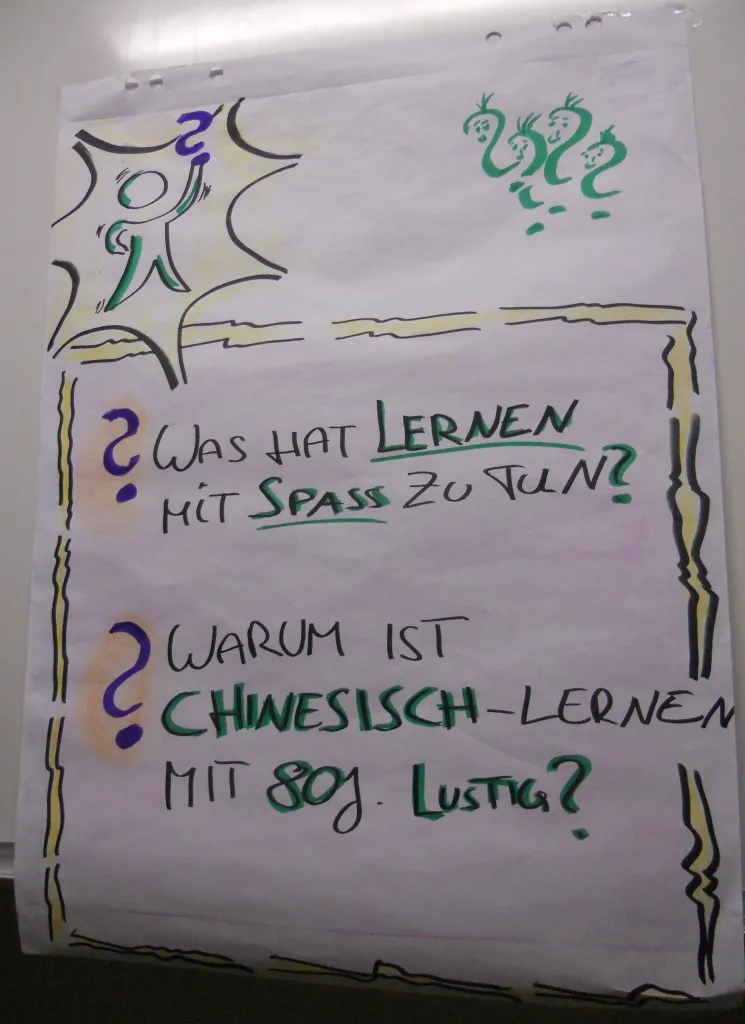 ?
? WAS HAT LERNEN
MIT SPASS ZU TUN?
? WARUM IST
CHINESISCH-LERNEN
MIT 80J. LUSTIG?